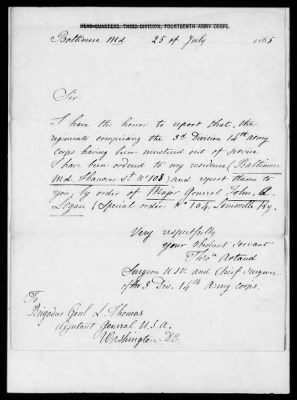 HEAD-QUARTERS, THIRD DIVISION, FOURTEENTH ARMY CORPS.
Baltimore Md 25 of July 1865
Sir
I have the honor to report that, the
regiments comprising the 3d Division 14th Army
Corps having been mustered out of service
I have been ordered to my residence (Baltimore
Md. Hanover St No 108) and report then to
you, by order of Major General John A.
Logan (Special order No 104, Louisville Ky.
Very respectfully
your Obedient Servant
Surgeon U.S.V. and Chief Surgeon
of the 3 Div. 14th Army Corps.
To
Brigadier Genl L. Thomas
Adjutant General U.S.A.
Washington D.C.